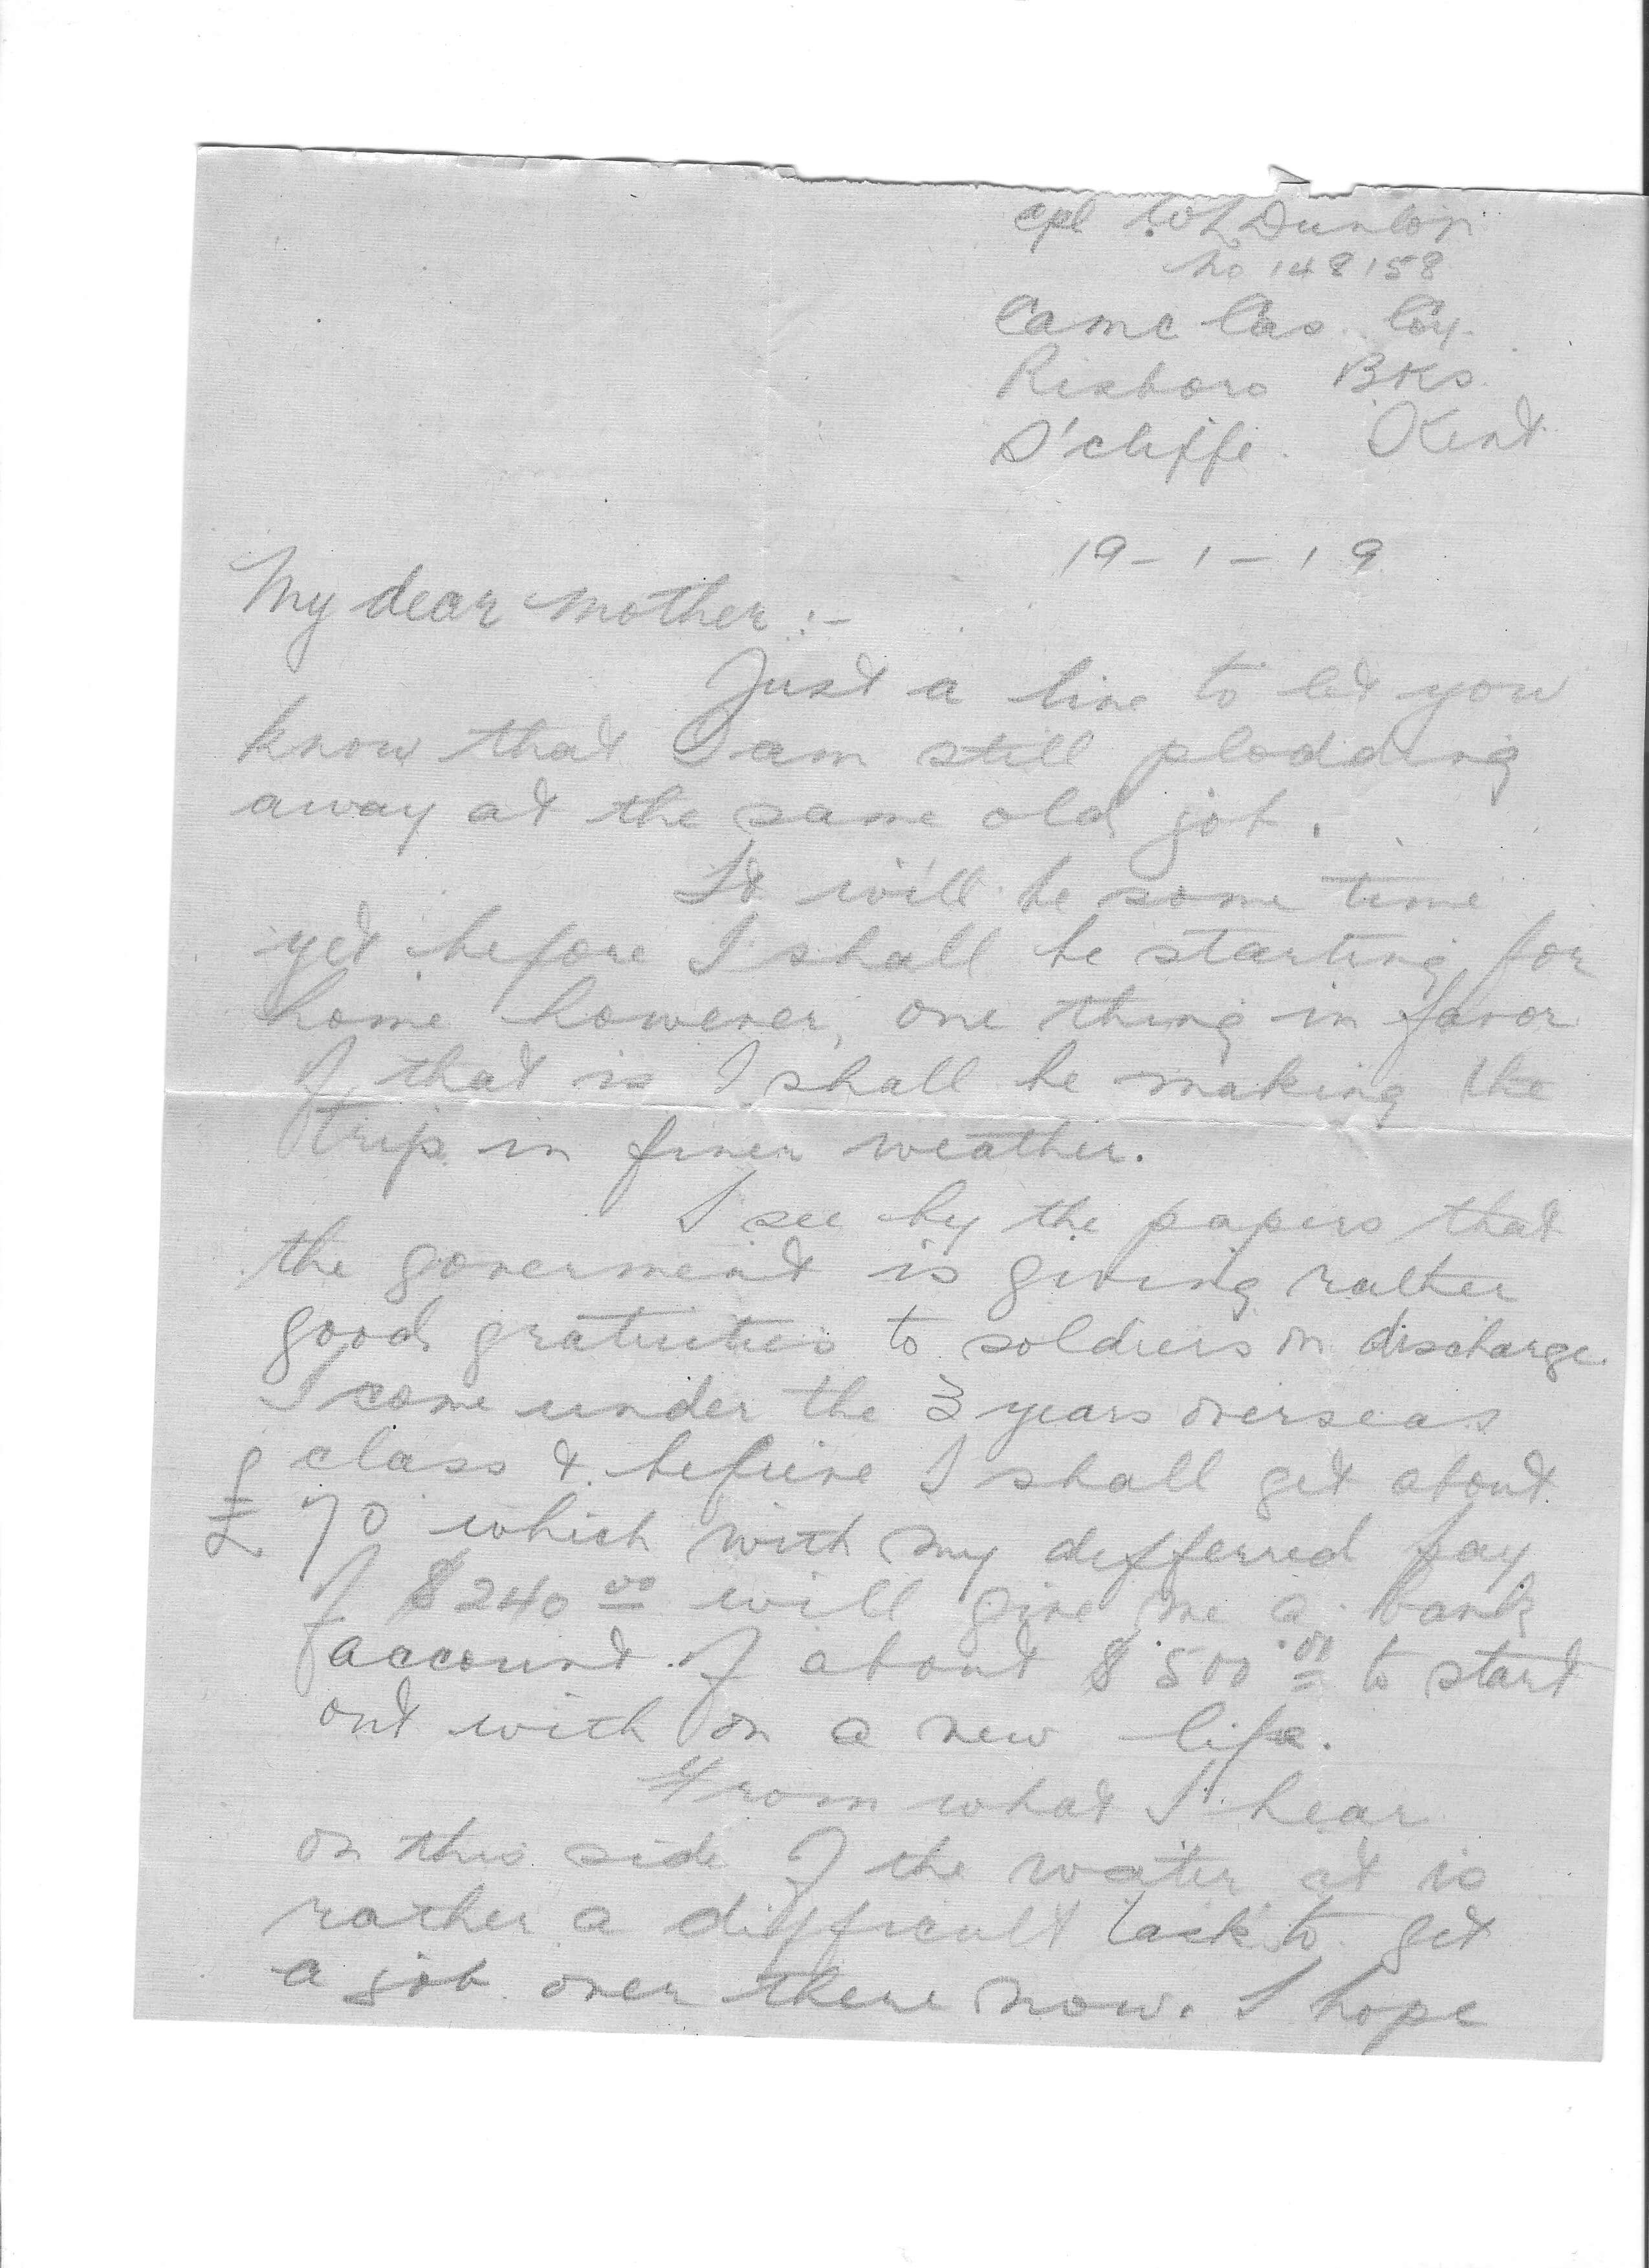 Cpl W L Dunlop
No 148158
Camc Cas. Coy.
Risboro Bks.
S'cliffe. Kent
19-1-19
My dear mother :-
Just a line to let you
know that I am still plodding
away at the same old job.
It will be some time
yet before I shall be starting for
home however, one thing in favor
of that is I shall be making the
trip in finer weather.
I see by the papers that
the goverment is giving rather
good gratuities to soldiers on discharge.
I come under the 3 years overseas
class & I shall get about
£ 70 which with my defferred pay
of $240 00 will give me a bank
account of about $500 00 to start
out with on a new life.
From what I hear
on this side of the water it is
rather a difficult task to get
a job over there now. I hope